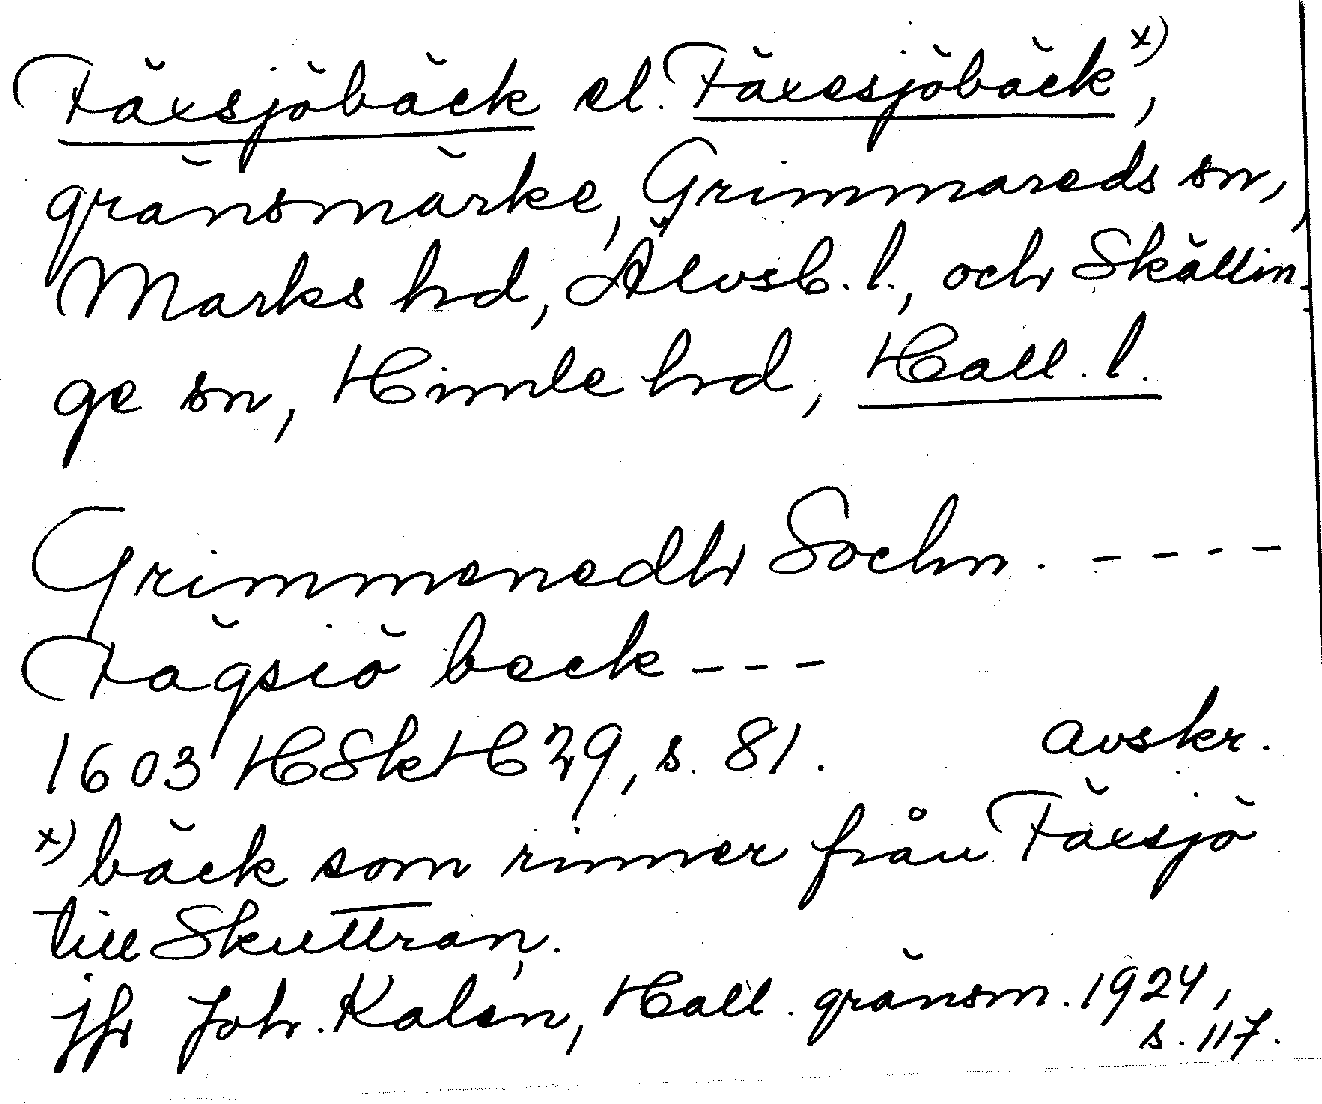 Fäxsjöbäck el. Fäxesjöbäck x),
gränsmärke, Grimmareds sn,
Marks hd, Älvsb. l., och Skällin-
ge sn, Himle hd, Hall. l.
Grimmeredh Sochn. ----
Fägsiö beck ---
1603 HSkH 29, s. 81. avskr.
x) bäck som rinner från Fäxsjö
till Skuttran.
jfr Joh. Kalén, Hall. gränsm. 1924,
s. 117.